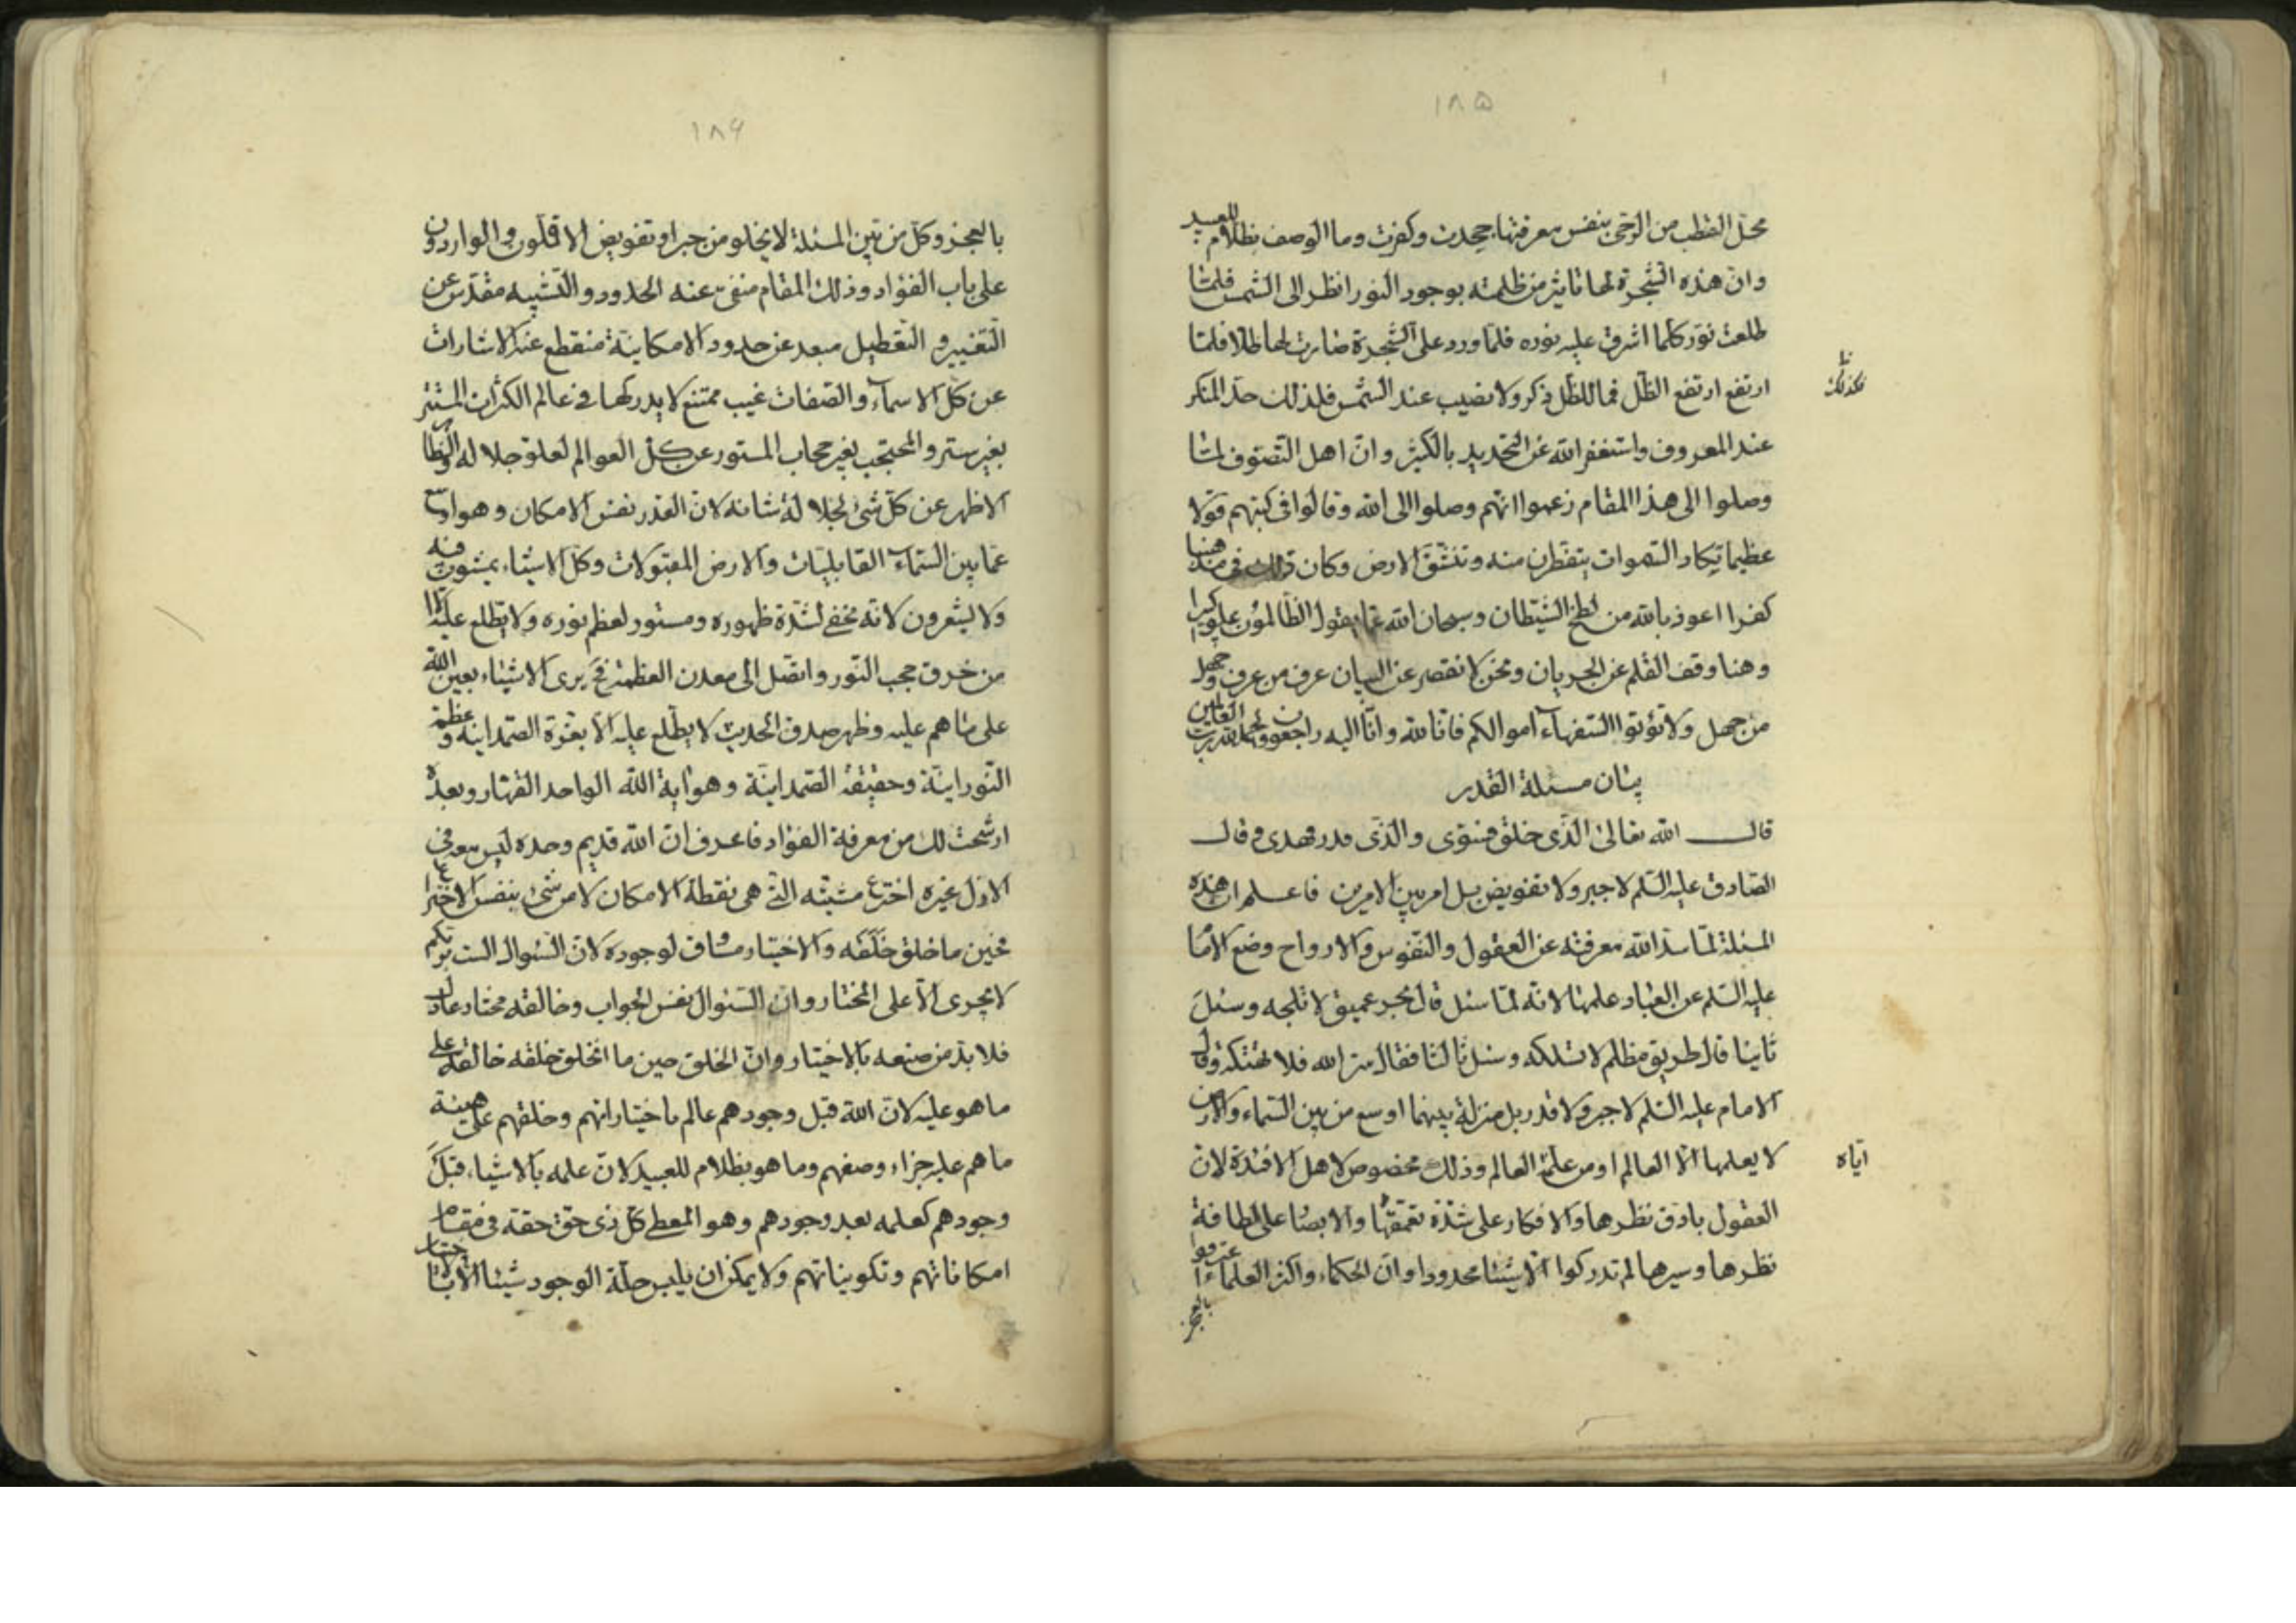 ١٨۵
محل القطب من الرحى بنفس معرفتها جحدت وكفرت وما الوصف بظلام للعبيد
وان هذه الشجرة لها تاثير من ظلمته بوجود النور انظر الى الشمس فلمّا
طلعت نوّر كلما اشرق عليه نوره فلمّا ورد على الشجرة صارت لها ظلا فلمّا
ارتفع ارتفع الظّل فما للظّل ذكر ولا نصيب عند الشمس فلذلك حدّ المنكر
فكذلك
عند المعروف واستغفر الله عن التحديد بالكثير وانّ اهل التّصوّف لمّا
وصلوا الى هذا المقام زعموا انّهم وصلوا الى الله وقالوا فى كتبهم قولا
عظيما تكاد السّموات يتفطّرن منه وتنشقّ الارض وكان ذلك فى
كفرا اعوذ بالله من الشّيطان وسبحان الله عمّا يقول الظّالمون علوا كبيرا
وهنا وقف القلم عن الجريان ونحن لا نقصر عن البيان عرف من عرف وجهل
من جهل ولا تؤتوا السّفهاء اموالكم فانّا لله وانّا اليه راجعون والحمد لله ربّ العالمين
بيان مسئلة القدر
قال الله تعالى الّذى خلق فسوّى والّذى قدر فهدى وقال
الصّادق عليه السّلم لا جبر ولا تفويض بل امر بين الامرين فاعلم ان هذه
المسئلة لمّا سدّ الله معرفته عن العقول والنّفوس والارواح وضع الامام
عليه السّلم عن العباد علمها لانّه لمّا سئل قال بحر عميق لا تلجه وسئل
ثانيا قال طريق مظلم لا تسلكه وسئل ثالثا فقال سرّ الله فلا تهتكه وقال
الامام عليه السّلم لا جبر ولا قدر بل منزلة بينهما اوسع من بين السّماء والارض
لا يعلمها الّا العالم او من علّمه العالم وذلك مخصوص لاهل الافئدة لانّ
ايّاه
العقول بادقّ نظرها والافكار على شدّة تعمّقها والابصار على لطافة
نظرها وسيرها لم تدركوا الّا شيئا محدودا وانّ الحكماء واكثر العلماء اعترفوا
بالعجز
١٨۶
بالعجز وكلّ من بيّن المسئلة لا يخلو من جبر او تفويض الا قلّون والواردون
على باب الفؤاد وذلك المقام منفىّ عنه الحدود والتّشبيه مقدّس عن
التّغيير والتّعطيل مبعد عن حدود الامكانيّة منقطع عنه الاشارات
عن كلّ الاسماء والصّفات غيب ممتنع لا يدركها فى عالم الكثرات المستتر
بغير ستر والمحتجب بغير حجاب المستور عن كلّ العوالم لعلوّ جلاله والظّاهر
الاظهر عن كلّ شئ لجلالة شانه لانّ القدر نفس الامكان وهو اوسع
عمّا بين السّماء القابليّات والارض المقبولات وكلّ الاشياء يمشون فيه
ولا يشعرون لانّه مخفى لشدّة ظهوره ومستور لعظم نوره ولا يطّلع عليه الّا
من خرق حجب النّور واتّصل الى معدن العظمة فح يرى الاشياء بعين الله
على ما هم عليه وظهر صدق الحديث لا يطّلع عليه الّا بعزّة الصّمدانيّة وعظمة
النّورانيّة وحقيقة الصّمدانيّة وهو آية الله الواحد القهّار وبعد ما
ارشّحت لك من معرفة الفؤاد فاعرف انّ الله قديم وحده ليس معه فى
الازل غيره اخترع مشيّته الّتى هى نقطة الامكان لا من شئ بنفس الاختراع
فحين ما خلق خلقه والاختيار مساوق لوجوده لانّ السّئوال الست بربّكم
لا يجرى الّا على المختار وانّ السّئوال نفس الجواب وخالقه مختار عادل
فلا بدّ من صنعه بالاختيار وانّ الخلق حين ما انخلق خلقه خالقه على
ما هو عليه لانّ الله قبل وجودهم عالم باختياراتهم وخلقهم على هيئة
ما هم عليه جزاء وصفهم وما هو بظلام للعبيد لانّ علمه بالاشياء قبل
وجودهم كعلمه بعد وجودهم وهو المعطى كلّ ذى حقّ حقّه فى مقام
امكاناتهم وتكويناتهم ولا يمكن ان يلبس حلّة الوجود شيئا الّا باختيار